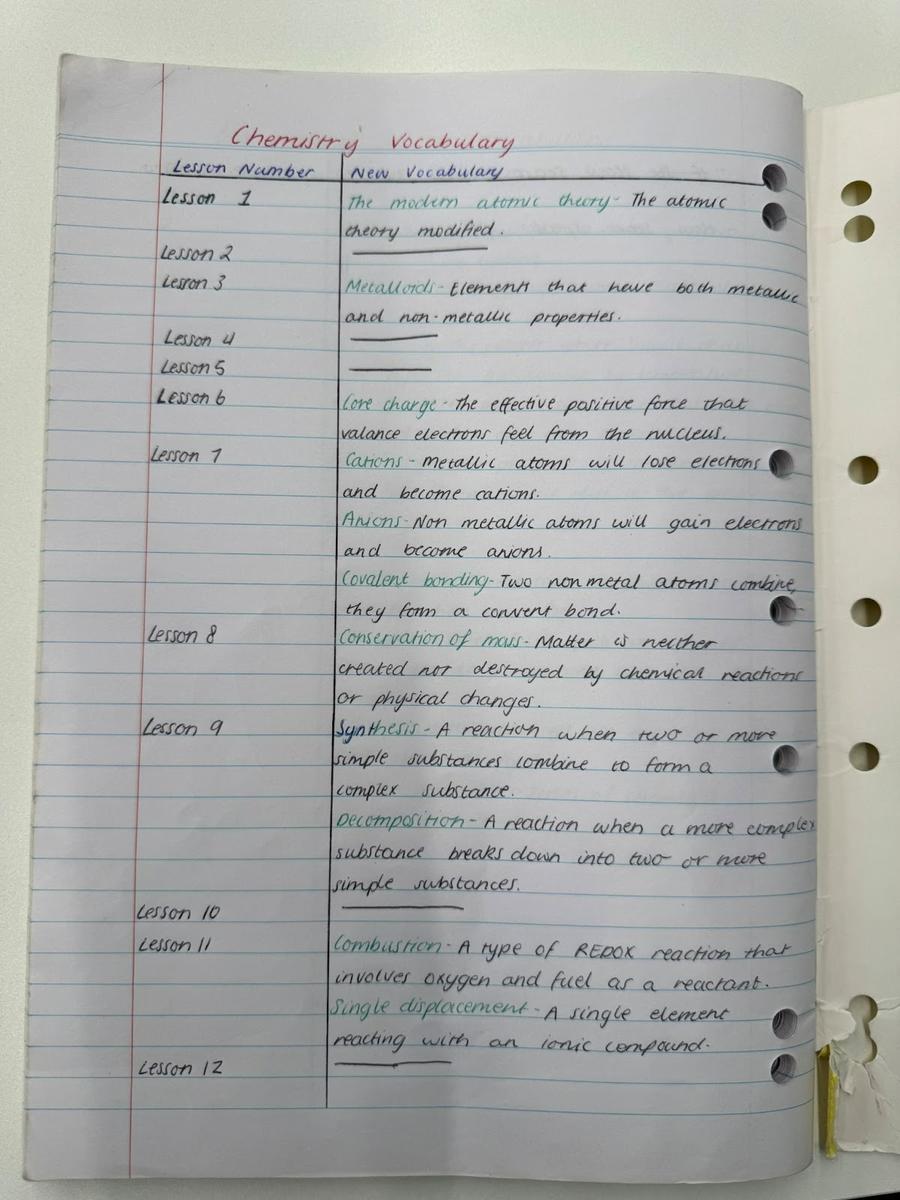 Chemistry Vocabulary
Lesson Number New Vocabulary
Lesson 1 The modern atomic theory - The atomic
theory modified.
Lesson 2
Lesson 3 Metalloids - Elements that have both metallic
and non-metallic properties.
Lesson 4
Lesson 5
Lesson 6 Core charge - The effective positive force that
valance electrons feel from the nucleus.
Lesson 7 Cations - Metallic atoms will lose electrons
and become cations.
Anions - Non metallic atoms will gain electrons
and become anions.
Covalent bonding - Two nonmetal atoms combine,
they form a convent bond.
Lesson 8 Conservation of mass - Matter is neither
created nor destroyed by chemical reactions
or physical changes.
Lesson 9 Synthesis - A reaction when two or more
simple substances combine to form a
complex substance.
Decomposition - A reaction when a more complex
substance breaks down into two or more
simple substances.
Lesson 10
Lesson 11 Combustion - A type of REDOX reaction that
involves oxygen and fuel as a reactant.
Single displacement - A single element
reacting with an ionic compound.
Lesson 12